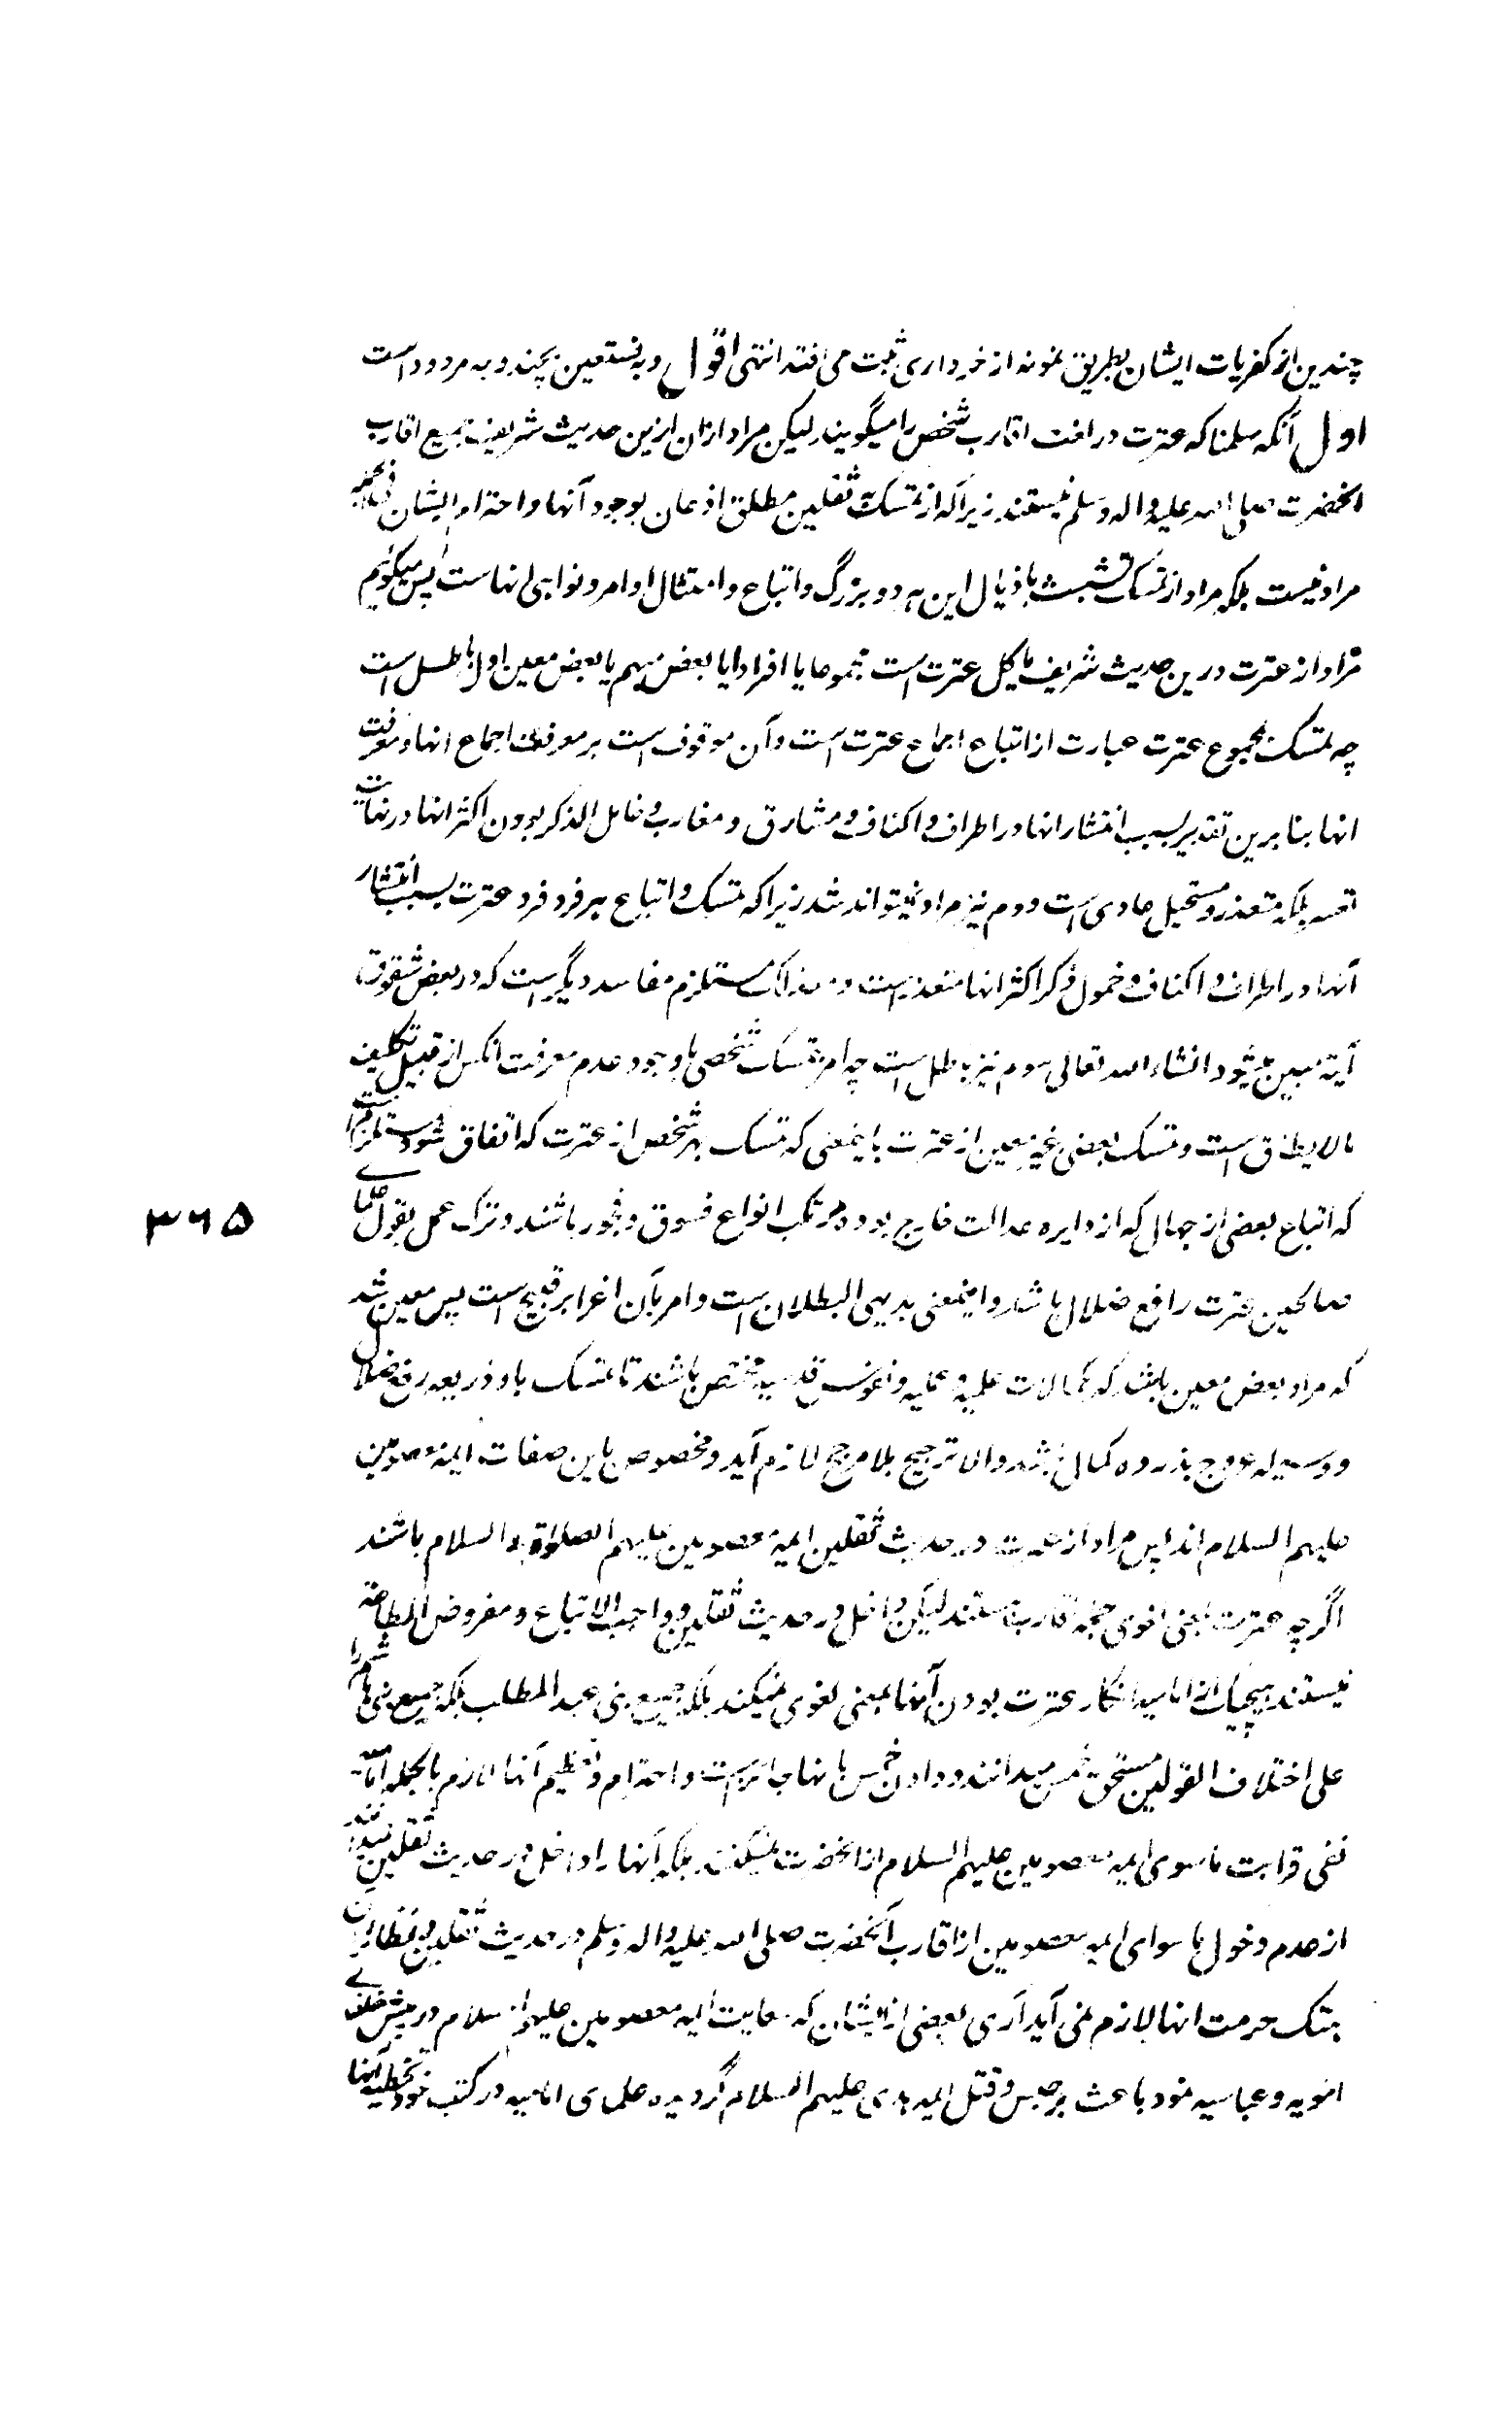 چندین از کفریات ایشان بطریق نمونه از خرواری ثبت می افتد انتهی اقول و به نستعین بچند وجه مردود است
اول آنکه سلمنا که عترت در لغت اقارب شخص را میگویند لیکن مراد از ان ازین حدیث شریف جمیع اقارب
آنحضرت صلی الله علیه واله وسلم نیستند زیرا که از تمسک ثقلین مطلق اذعان بوجود آنها و احترام ایشان فی الجمله
مراد نیست بلکه مراد از تمسک تشبث باذیال این هر دو بزرگ و اتباع و امتثال اوامر و نواهی انهاست پس میگوئیم
مراد از عترت درین حدیث شریف یا کل عترت است مجموعا یا افرادا یا بعض مبهم یا بعض معین اول باطل است
چه تمسک بمجموع عترت عبارت از اتباع اجماع عترت است و آن موقوف است بر معرفت اجماع انها و معرفت
انها بنا برین تقدیر بسبب انتشار انها در اطراف و اکناف و مشارق و مغارب و خامل الذکر بودن اکثر انها در نهایت
تعسر بلکه متعذر و مستحیل عادی است دوم نیز مراد نمیتواند شد زیرا که تمسک و اتباع هر فرد فرد عترت بسبب انتشار
آنها در اطراف و اکناف و خمول ذکر اکثر انها متعذر است و مستلزم مفاسد دیگر است که در بعض شقوق
آتیه مبین میشود انشاء الله تعالی سوم نیز باطل است چه امر بتمسک شخصی باوجود عدم معرفت انکس از قبیل تکلیف
مالا یطاق است و تمسک ببعض غیر معین از عترت باینمعنی که تمسک بهر شخص از عترت که اتفاق شود مستلزم انست
که اتباع بعضی از جهال که از دایره عدالت خارج بوده مرتکب انواع فسوق و فجور باشند و ترک عمل بقول علمای
صالحین عترت رافع ضلال باشد و اینمعنی بدیهی البطلان است و امر بآن اغرا بر قبیح است پس معین شد
که مراد بعض معین باشد که بکمالات علمیه و عملیه و نفوس قدسیه مختص باشند تا تمسک باو ذریعه رفع ضلال
و وسیله عروج بذروه کمال باشد والا ترجیح بلا مرجح لازم آید و مخصوص باین صفات ایمه معصومین
علیهم السلام اند پس مراد از عترت در حدیث ثقلین ایمه معصومین علیهم الصلوة والسلام باشند
اگرچه عترت بمعنی لغوی جمیع اقارب هستند لیکن داخل در حدیث ثقلین و واجب الاتباع و مفروض الطاعة
نیستند هیچیک از امامیه انکار عترت بودن آنها بمعنی لغوی نمیکند بلکه جمیع بنی عبد المطلب بلکه جمیع بنی هاشم را
علی اختلاف القولین مستحق خمس میدانند و دادن خمس بانها جائز است و احترام و تعظیم آنها لازم بالجمله امامیه
نفی قرابت ماسوی ایمه معصومین علیهم السلام از آنحضرت نمیکنند بلکه آنها را داخل در حدیث ثقلین نمیدانند
از عدم دخول ماسوای ایمه معصومین از اقارب آنحضرت صلی الله علیه واله وسلم در حدیث ثقلین
هتک حرمت انها لازم نمی آید آری بعضی از ایشان که سعایت ایمه معصومین علیهم السلام در پیش خلفای
امویه و عباسیه نموده باعث بر حبس و قتل ایمه هدی علیهم السلام گردیده علمای امامیه در کتب خود تخطیه آنها
۳۶۵